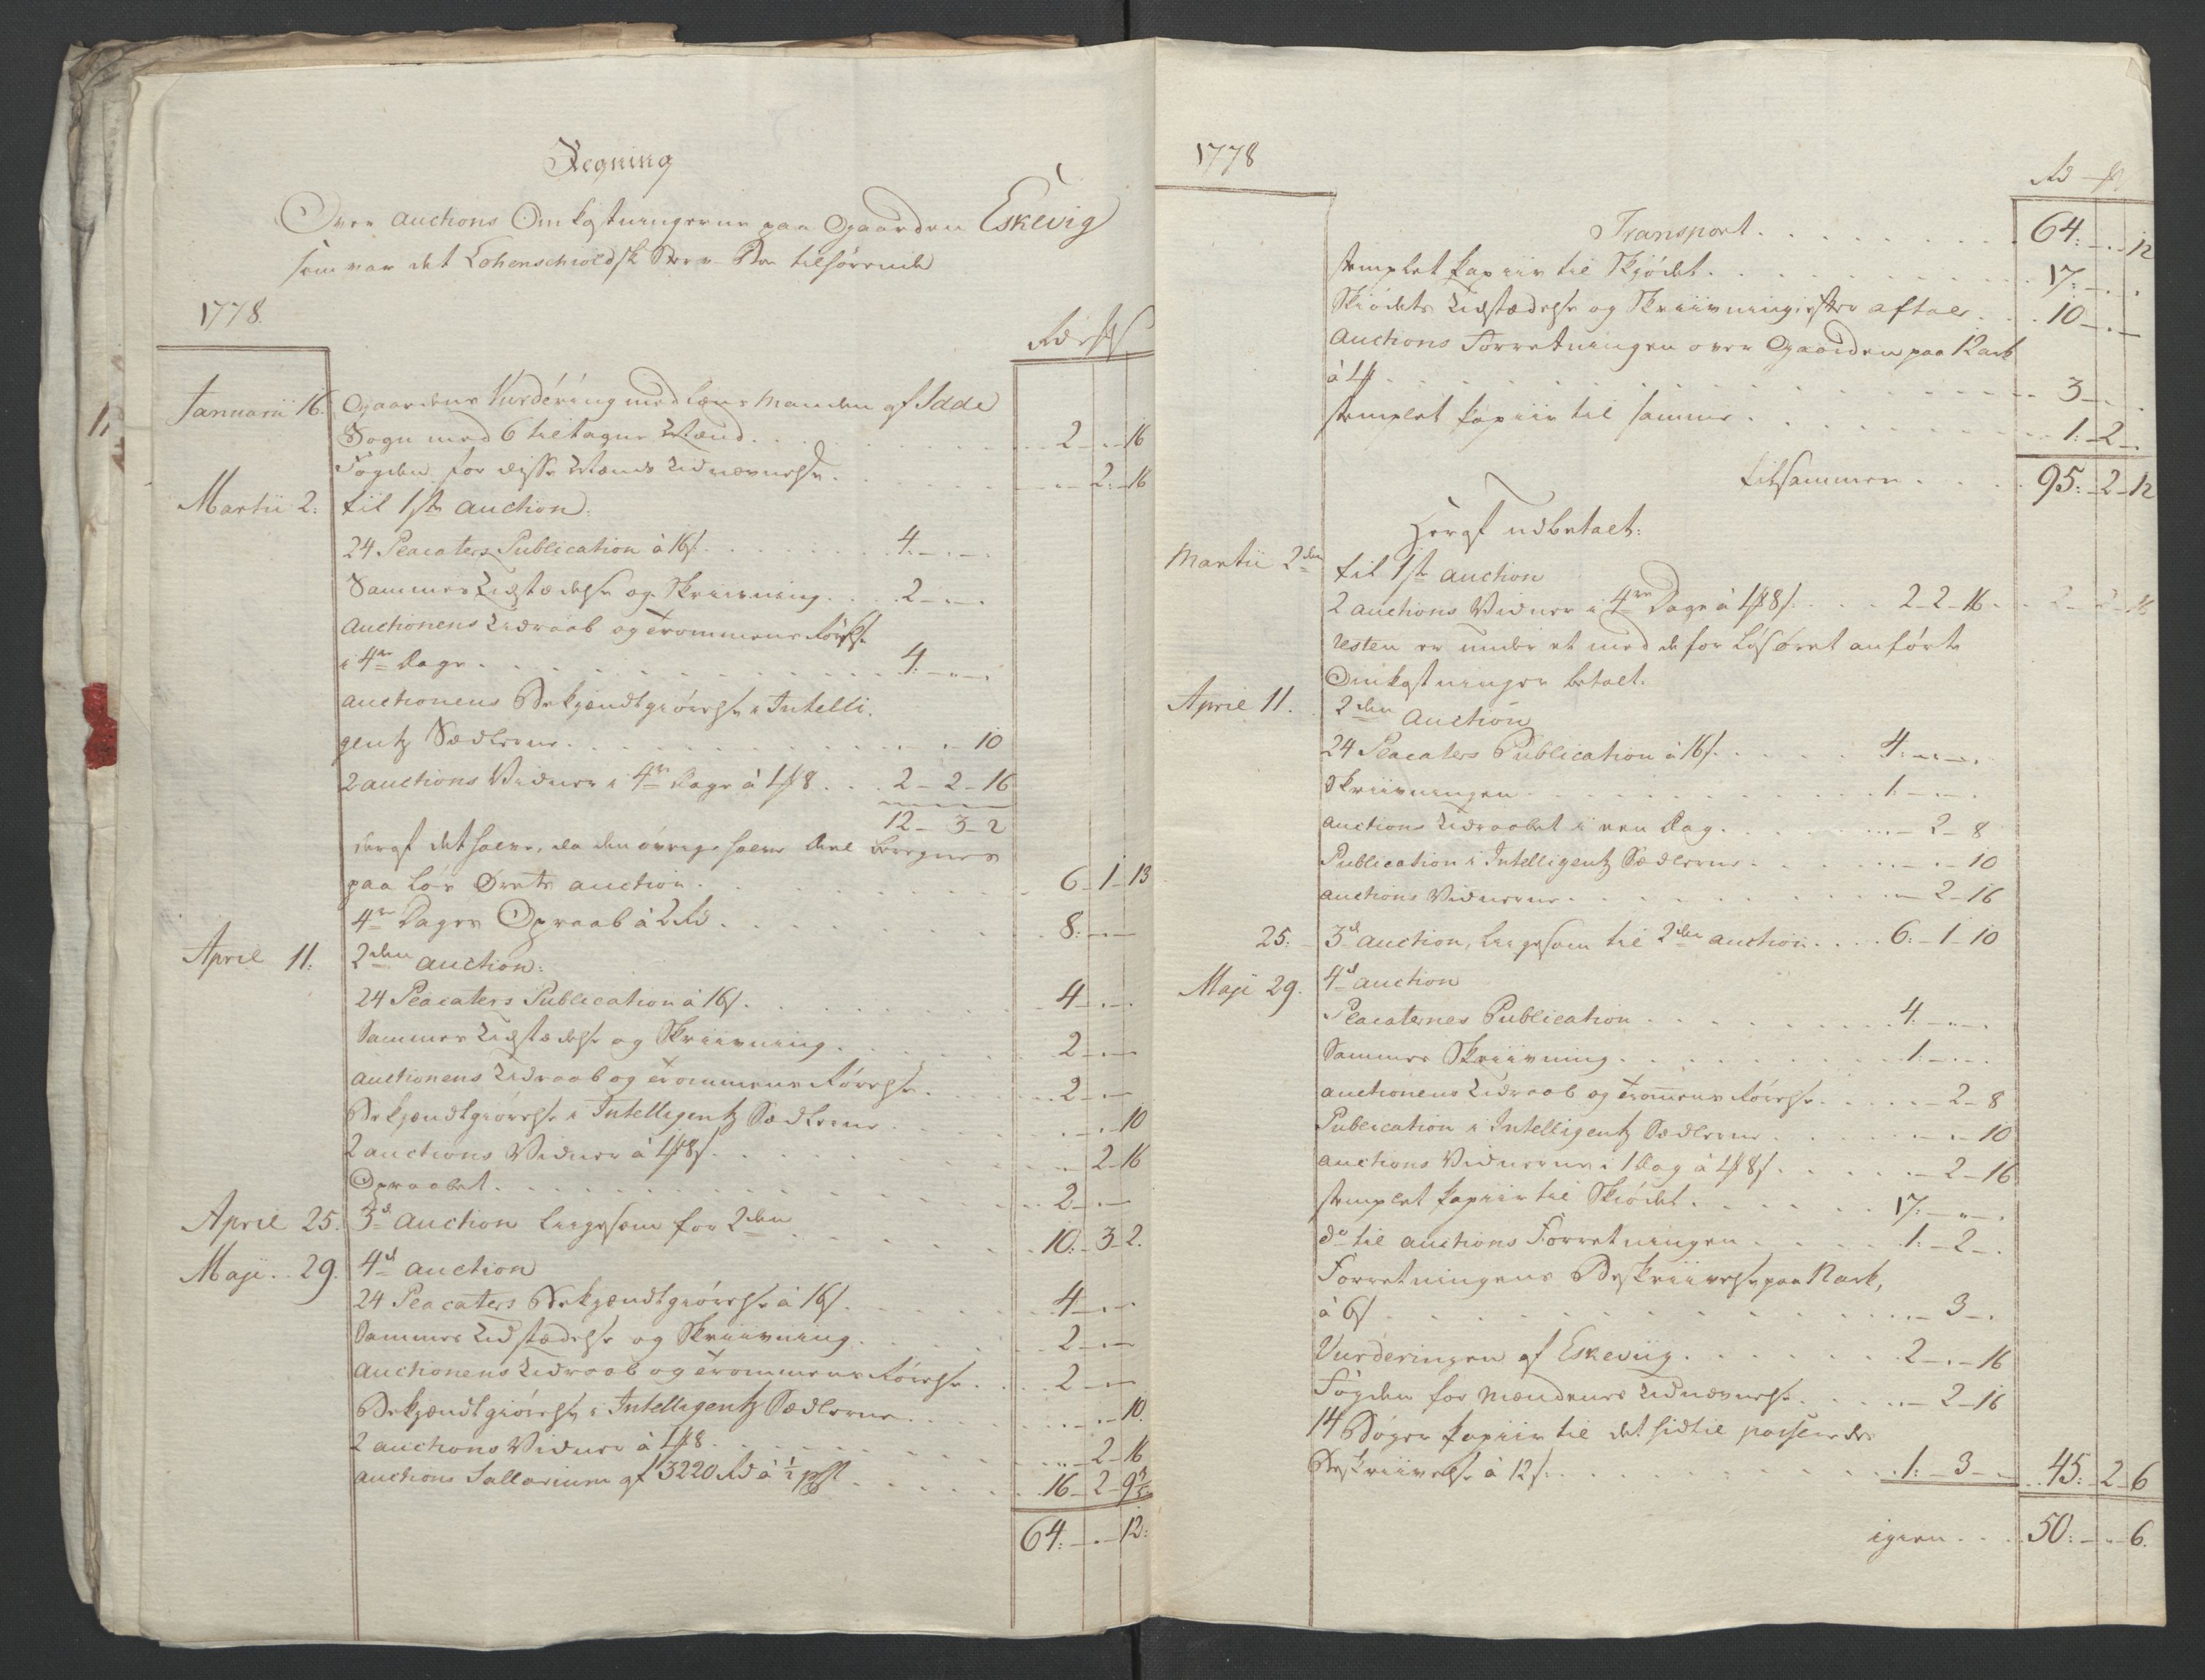 Regning
Over Auctions Omkostningerne paa Gaarden Eskevig
som var det Lohenschioldsk Sterv Boe tilhörende
1778.
Rd ß
Januarii 16. Gaardens Vurdéring med Lens Manden af Idde
Sogn med 6 tiltagne Mænd . . . 2 - . - 16
Fogden for disse Mænds Udnævnelse . . . 2 - 16
Martii 2: til 1ste Auction:
24 Placaters Publication à 16ß . . . 4. - . - .
Sammes Udstædelse og Skriivning . . . 2 - . - .
Auctionens Udraab og Trommens Rörelse
i 4re Dage . . . 4. - . - .
Auctionens Bekjendtgiörelse i Intelli-
gentz Sædlerne . . . - 10
2 Auctions Vidner i 4re Dage à 1/8 . . . 2 - 2 - 16
12 - 3 - 2
deraf det halve, da den övrige halve Deel beregnes
paa Lös Örets Auction . . . 6 - 1 - 13
4re Dages Opraab à 2 Rd . . . 8: - . -
April 11: 2den Auction:
24 Placaters Publication à 16ß . . . 4 - . - .
Sammes Udstædelse og Skriivning . . . 2 - . -
Auctionens Udraab og Trommens Rörelse . . . 2 - . -
Bekjendtgiörelse i Intelligentz Sædlerne . . . - 10
2 Auctions Vidner à 1/8ß . . . 2 - 16
Opraabet . . . 2 - . -
April 25. 3d Auction liigesom for 2den . . . 10: - 3 - 2.
Maji . . 29. 4d Auction
24 Placaters Bekjendtgiörelse à 16ß . . . 4 - . -
Sammes Udstædelse og Skriivning . . . 2 - . -
Auctionens Udraab og Trommens Rörelse . . . 2 - . -
Bekjendtgiörelse i Intelligentz Sædlerne . . . - 10.
2 Auctions Vidner à 1/8 . . . 2 - 16
Auctions Sallarium af 3220 Rd à 1/2 pCt . . . 16 - 2 - 9
64: - . - 12:
1778
Rd - ß
Transport . . . 64: - . - 12
stemplet Papiir til Skjödet . . . 17: - . - .
Skiödets Udstædelse og Skriivning efter aftale . . . 10 - . -
Auctions Forretningen over Gaarden paa 12 Ark
à . . . 3 - . .
stemplet Papiir til samme . . . 1: - 2 - .
tilsammen . . . 95: - 2 - 12
Heraf udbetalt:
Martii 2den til 1ste Auction
2 Auctions Vidner i 4re Dage à 1/8ß . . . 2 - 2 - 16 . . 2 - 2 - 16
resten er under et med de for Lösöret anförte
Omkostninger betalt.
April 11. 2den Auction
24 Placaters Publication à 16ß . . . 4: - . - .
Skriivningen . . . 1. - . - .
Auctions Udraabet i een Dag . . . - 2 - 8
Publication i Intelligentz Sædlerne . . . - . - 10
Auctions Vidnerne . . . - 2 - 16
25: - 3d Auction, liigesom til 2den Auction . . . 6: - 1 - 10
Maji 29. 4d Auction
Placaternes Publication . . . 4. - . - .
Sammes Skriivning . . . 1. - . - .
Auctionens Udraab og Trommens Rörelse . . . - 2 - 8
Publication i Intelligentz Sædlerne . . . - . - 10
Auctions Vidnerne i 1 Dag à 1/8ß . . . - 2 - 16
stemplet Papiir til Skiödet . . . 17: - . - .
do til Auctions Forretningen . . . 1: - 2 - .
Forretningens Beskriivelse paa 12 Ark,
à 6ß . . . - 3 - .
Vurderingen af Eskeviig . . . 2 - . - 16
Fogden for Mændenes Udnævnelse . . . - 2 - 16
14 Böger Papiir til det hidtil passerede
Beskriivelse à 12ß: . . . 1. - 3 - . . . 45: - 2 - 6
igien . . . 50: - . - 6.